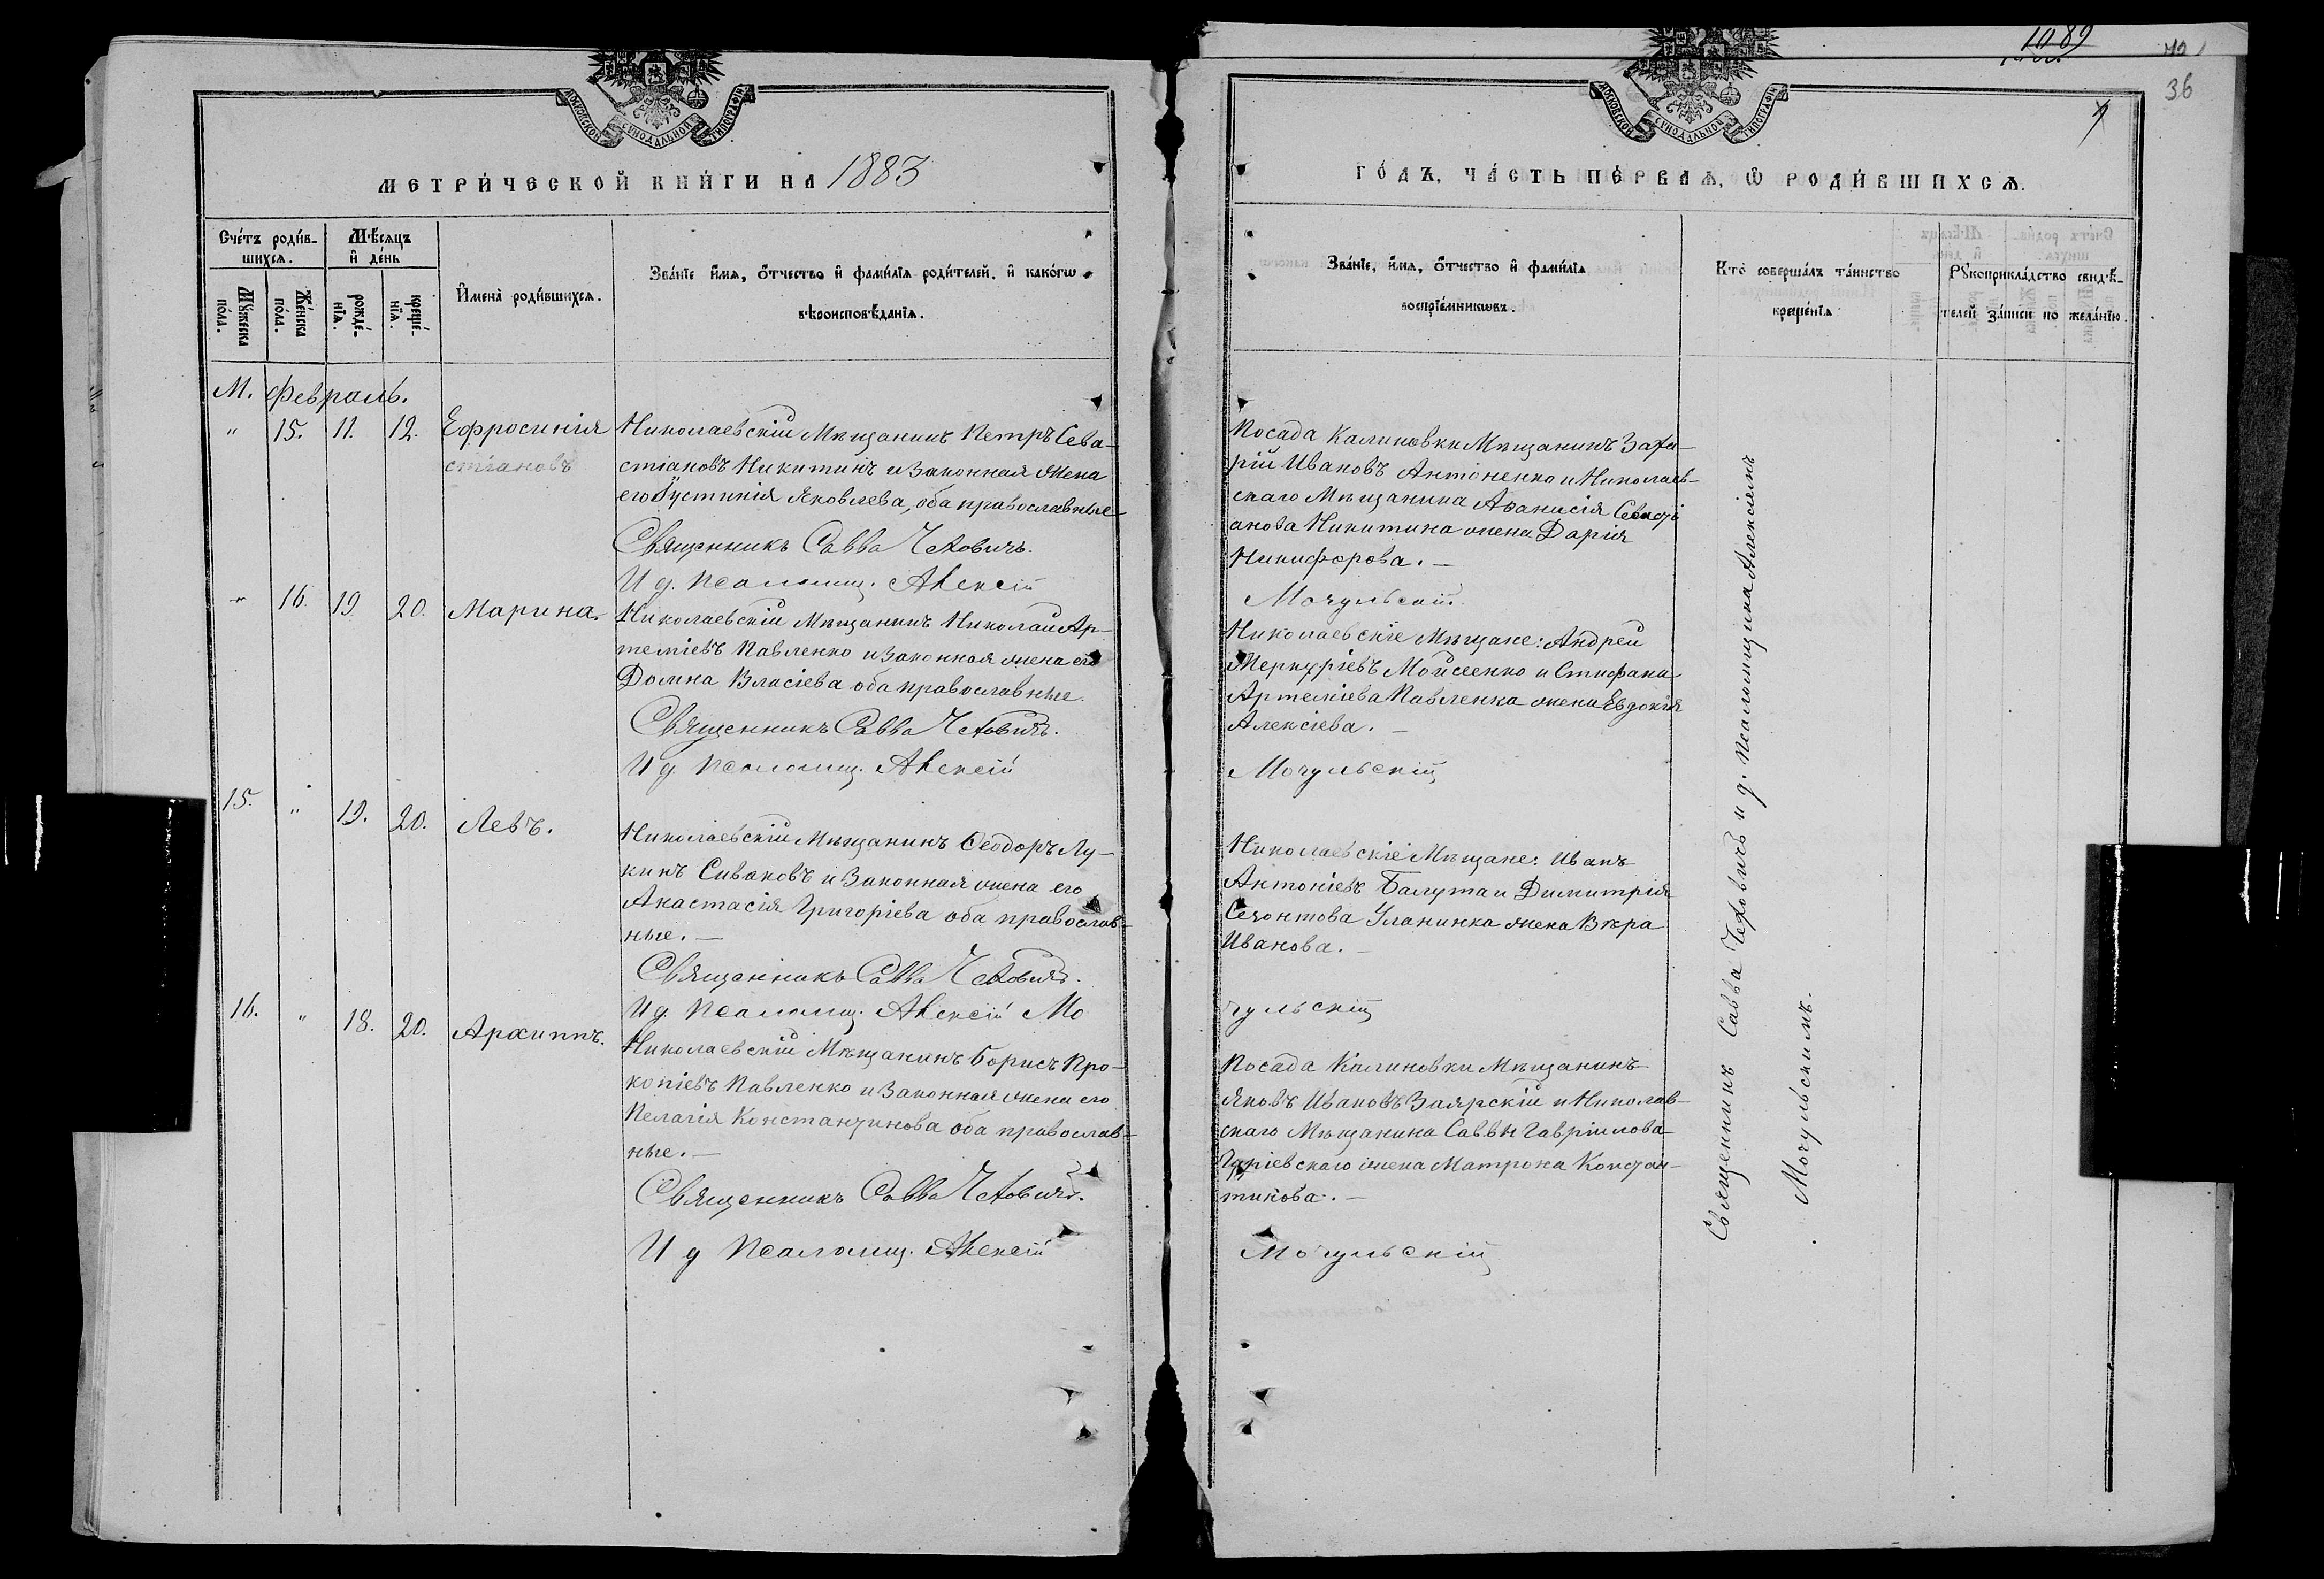 МОСКОВСКОЙ СѴНОДАЛЬНОЙ ТИПОГРАФІИ
МЕТРИ́ЧЕСКОЙ КНИ́ГИ НА 1883
Сче́тъ роди́в-
шихсѧ.
М҃ѣсѧцъ
и҆ де́нь
Мꙋ́жеска
по́ла.
Же́нска
по́ла.
рожде́-
нїѧ.
креще́-
нїѧ.
И҆мена̀ роди́вшихсѧ.
Зва́нїе и҆́мѧ, ѻ҆́тчество и҆ фами́лїѧ роди́телей, и҆ како́гѡ
вѣроисповѣ́данїѧ.
М. Февраль.
" 15. 11. 12. Ефросинія
стіановъ
Николаевскій Мѣщанинъ Петръ Сева-
стіановъ Никитинъ и Законная жена
его Іустинія Яковлева, оба православные
Священникъ Савва Чехович.
И д. псаломщ. Алексій
" 16. 19 20. Марина.
Николаевскій Мѣщанинъ Николай Ар-
теміевъ Павленко и Законная жена его
Домна Власіева оба православные.
Священникъ Савва Чехович.
И д. псаломщ. Алексій
15. " 19. 20. Левъ.
Николаевскій Мѣщанинъ Ѳеодоръ Лу-
кинъ Сиваковъ и Законная жена его
Анастасія Григоріева оба православ-
ные. —
Священникъ Савва Чехович.
И д. псаломщ. Алексій Мо
16. " 18. 20. Архиппъ.
Николаевскій Мѣщанинъ Борисъ Про-
копіевъ Павленко и Законная жена его
Пелагія Константинова оба православ-
ные. —
Священникъ Савва Чехович.
И д псаломщ. Алексій
1089
36
7
МОСКОВСКОЙ СѴНОДАЛЬНОЙ ТИПОГРАФІИ
ГО́ДЪ, ЧА́СТЬ ПЕ́РВАѦ, Ѡ҆ РОДИ́ВШИХСѦ.
Зва́нїе, и҆́мѧ, ѻ҆́тчество и҆ фами́лїѧ
воспрїе́мникѡвъ.
Кто̀ соверша́лъ та́инство
креще́нїѧ
Рꙋкоприкла́дство свидѣ́-
телей за́писи по жела́нїю.
Посада Калиновки Мѣщанинъ Заха-
рій Ивановъ Антоненко и Николаев-
скаго Мѣщанина Аѳанасія Севасті
анова Никитина жена Дарія
Никифорова. —
Мочульскій.
Николаевскіе Мѣщане: Андрей
Меркуріевъ Мойсеенко и Стефана
Артеміева Павленка жена Евдокія
Алексіева. —
Мочульскій
Николаевскіе Мѣщане: Иванъ
Антоніевъ Балута и Димитрія
Созонтова Уланинка жена Вѣра
Иванова. —
чульскій
Посада Калиновки Мѣщанинъ
Яковъ Ивановъ Заярскій и Николав-
скаго Мѣщанина Саввы Гавріилова
Гуріевскаго жена Матрона Констан-
тинова. —
Мочульскій
Священникъ Савва Чеховичъ и д. Псаломщика Алексіемъ
Мочульскимъ.